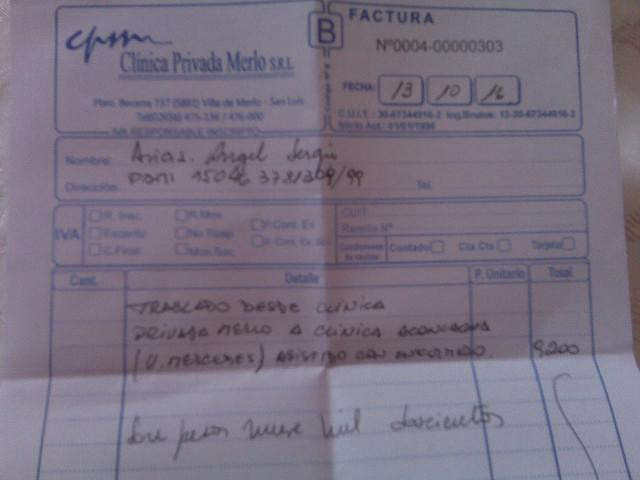 cpm
Clínica Privada Merlo S.R.L
Pbro. Becerra 737 (5881) Villa de Merlo - San Luis
Tel(02656) 475-336 / 476-000
IVA RESPONSABLE INSCRIPTO
B
Código Nº 6
FACTURA
Nº0004-00000303
FECHA: 13 10 16
C.U.I.T.: 30-67344916-2 Ing.Brutos: 12-30-67344916-2
Inicio Act.: 01/01/1996
Nombre: Arias Angel Sergio
Dirección:
Tel.
IVA
R. Insc. R.Mon. P.Cont. Ex
Excento No Resp.
C.Final Mon.Soc
CUIT:
Remito Nº
Condiciones de ventas Contado Cta.Cta Tarjeta
Cant. Detalle P. Unitario Total
TRASLADO DESDE CLINICA
PRIVADA MERLO A CLINICA ACONCAGUA
(V. MERCEDES) ASISTIDO CON ENFERMERO. 9200
Son pesos nueve mil doscientos